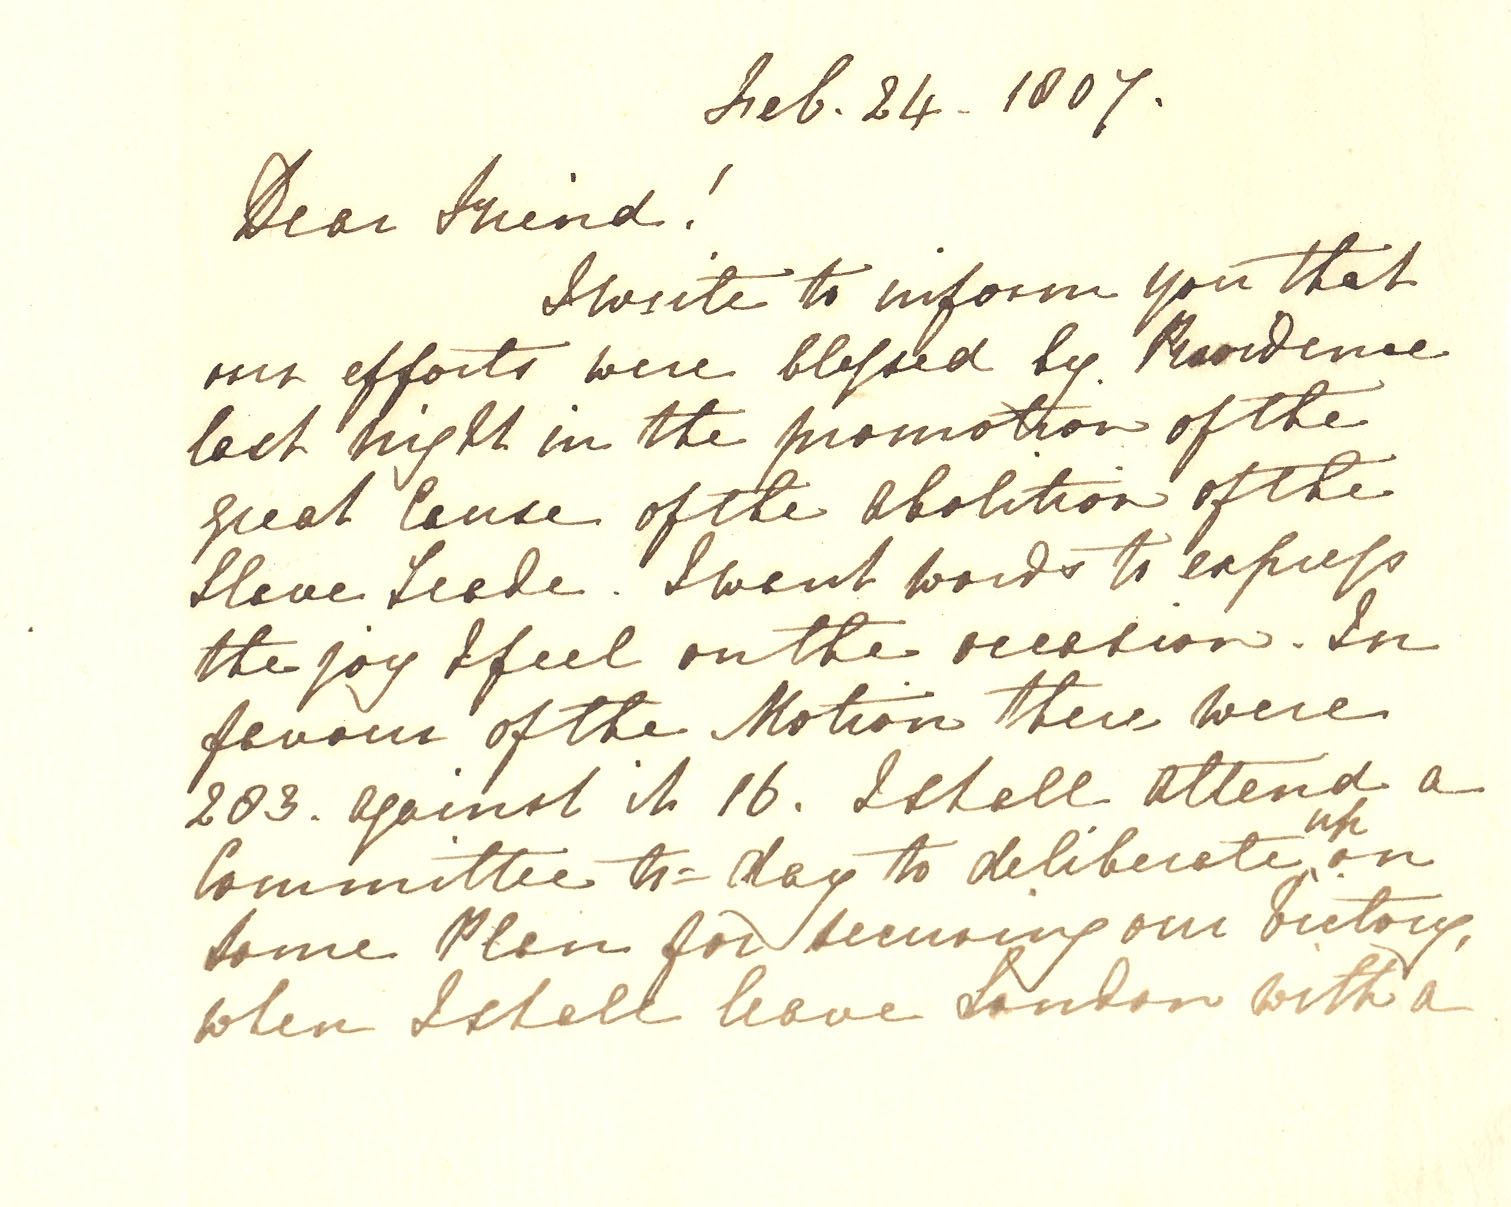 Feb. 24 - 1807.
Dear Friend!
I write to inform you that
our efforts were blessed by Providence
last night in the promotion of the
great Cause of the Abolition of the
Slave Trade. I want words to express
the joy I feel on the occasion. In
favour of the Motion there were
283. against it 16. I shall attend a
Committee to=day to deliberate upon
some Plan for securing our Victory,
when I shall leave London with a